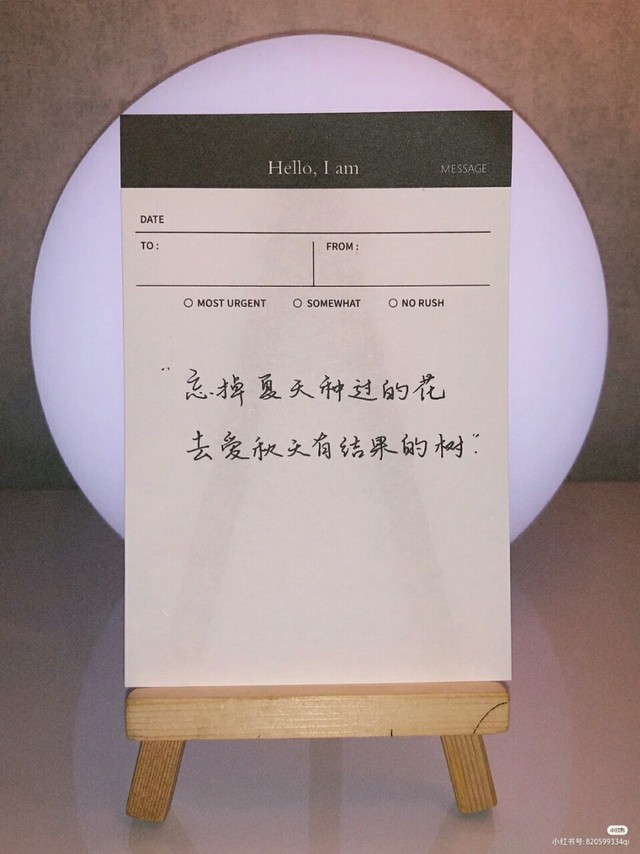 Hello, I am
MESSAGE
DATE
TO :
FROM :
MOST URGENT
SOMEWHAT
NO RUSH
“忘掉夏天种过的花
去爱秋天有结果的树”.
小红书
小红书号: 820599334qi